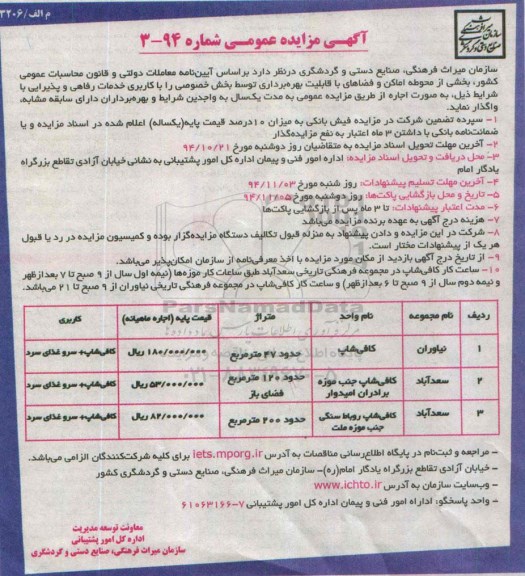 م الف/۳۲۰۶
سازمان میراث فرهنگی
صنایع دستی و گردشگری
آگهی مزایده عمومی شماره ۹۴-۳
سازمان میراث فرهنگی، صنایع دستی و گردشگری درنظر دارد براساس آیین‌نامه معاملات دولتی و قانون محاسبات عمومی
کشور، بخشی از محوطه اماکن و فضاهای با قابلیت بهره‌برداری توسط بخش خصوصی را با کاربری خدمات رفاهی و پذیرایی با
شرایط ذیل، به صورت اجاره از طریق مزایده عمومی به مدت یک‌سال به واجدین شرایط و بهره‌برداران دارای سابقه مشابه،
واگذار نماید.
۱- سپرده تضمین شرکت در مزایده فیش بانکی به میزان ۱۰درصد قیمت پایه(یکساله) اعلام شده در اسناد مزایده و یا
ضمانت‌نامه بانکی با داشتن ۳ ماه اعتبار به نفع مزایده‌گذار
۲- آخرین مهلت تحویل اسناد مزایده به متقاضیان روز دوشنبه مورخ ۹۴/۱۰/۲۱
۳- محل دریافت و تحویل اسناد مزایده: اداره امور فنی و پیمان اداره کل امور پشتیبانی به نشانی خیابان آزادی تقاطع بزرگراه
یادگار امام
۴- آخرین مهلت تسلیم پیشنهادات: روز شنبه مورخ ۹۴/۱۱/۰۳
۵- تاریخ و محل بازگشایی پاکت‌ها: روز دوشنبه مورخ ۹۴/۱۱/۰۵
۶- مدت اعتبار پیشنهادات: تا ۳ ماه پس از بازگشایی پاکت‌ها
۷- هزینه درج آگهی به عهده برنده مزایده می‌باشد
۸- شرکت در این مزایده و دادن پیشنهاد به منزله قبول تکالیف دستگاه مزایده‌گزار بوده و کمیسیون مزایده در رد یا قبول
هر یک از پیشنهادات مختار است.
۹- از تاریخ درج آگهی بازدید از مکان مورد مزایده با اخذ معرفی‌نامه از سازمان امکان‌پذیر می‌باشد.
۱۰- ساعت کار کافی‌شاپ در مجموعه فرهنگی تاریخی سعدآباد طبق ساعات کار موزه‌ها (نیمه اول سال از ۹ صبح تا ۷ بعدازظهر
و نیمه دوم سال از ۹ صبح تا ۶ بعدازظهر) و ساعت کار کافی‌شاپ در مجموعه فرهنگی تاریخی نیاوران از ۹ صبح تا ۲۱ می‌باشد.
ParsNamadData
۰۲۱-۸۸۳۴۹۶۷۰-۵
ردیف نام مجموعه نام واحد متراژ قیمت پایه (اجاره ماهیانه) کاربری
۱ نیاوران کافی‌شاپ حدود ۴۷ مترمربع ۱۸۰/۰۰۰/۰۰۰ ریال کافی‌شاپ+ سرو غذای سرد
۲ سعدآباد کافی‌شاپ جنب موزه برادران امیدوار حدود ۱۲۰ مترمربع فضای باز ۵۳/۰۰۰/۰۰۰ ریال کافی‌شاپ+ سرو غذای سرد
۳ سعدآباد کافی‌شاپ روباط سنگی جنب موزه ملت حدود ۲۰۰ مترمربع ۸۲/۰۰۰/۰۰۰ ریال کافی‌شاپ+ سرو غذای سرد
- مراجعه و ثبت‌نام در پایگاه اطلاع‌رسانی مناقصات به آدرس iets.mporg.ir برای کلیه شرکت‌کنندگان الزامی می‌باشد.
- خیابان آزادی تقاطع بزرگراه یادگار امام(ره)- سازمان میراث فرهنگی، صنایع دستی و گردشگری کشور
- وب‌سایت سازمان به آدرس www.ichto.ir
- واحد پاسخگو: اداراه امور فنی و پیمان اداره کل امور پشتیبانی ۷-۶۱۰۶۳۱۶۶
معاونت توسعه مدیریت
اداره کل امور پشتیبانی
سازمان میراث فرهنگی، صنایع دستی و گردشگری